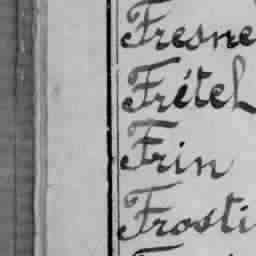 Fresne
Frétel
Frin
Frosti